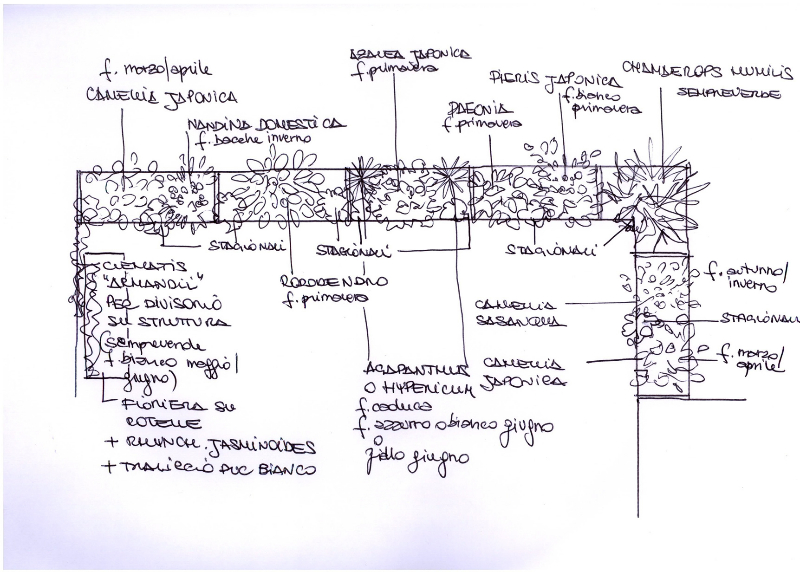 f. marzo/aprile
CAMELLIA JAPONICA
NANDINA DOMESTICA
f. bacche inverno
AZALEA JAPONICA
f. primavera
PAEONIA
f. primavera
PIERIS JAPONICA
f. bianco
primavera
CHAMAEROPS HUMILIS
SEMPREVERDE
STAGIONALI
STAGIONALI
STAGIONALI
RODODENDRO
f. primavera
CLEMATIS
"ARMANDII"
PER DIVISORIO
SU STRUTTURA
(sempreverde
f. bianco maggio/
giugno)
FIORIERA SU
ROTELLE
+ RHYNCH. JASMINOIDES
+ TRALICCIO PVC BIANCO
AGAPANTHUS
O HYPERICUM
f. caduca
f. azzurro o bianco giugno
o
giallo giugno
CAMELLIA
SASANQUA
CAMELLIA
JAPONICA
f. autunno/
inverno
STAGIONALI
f. marzo/
aprile